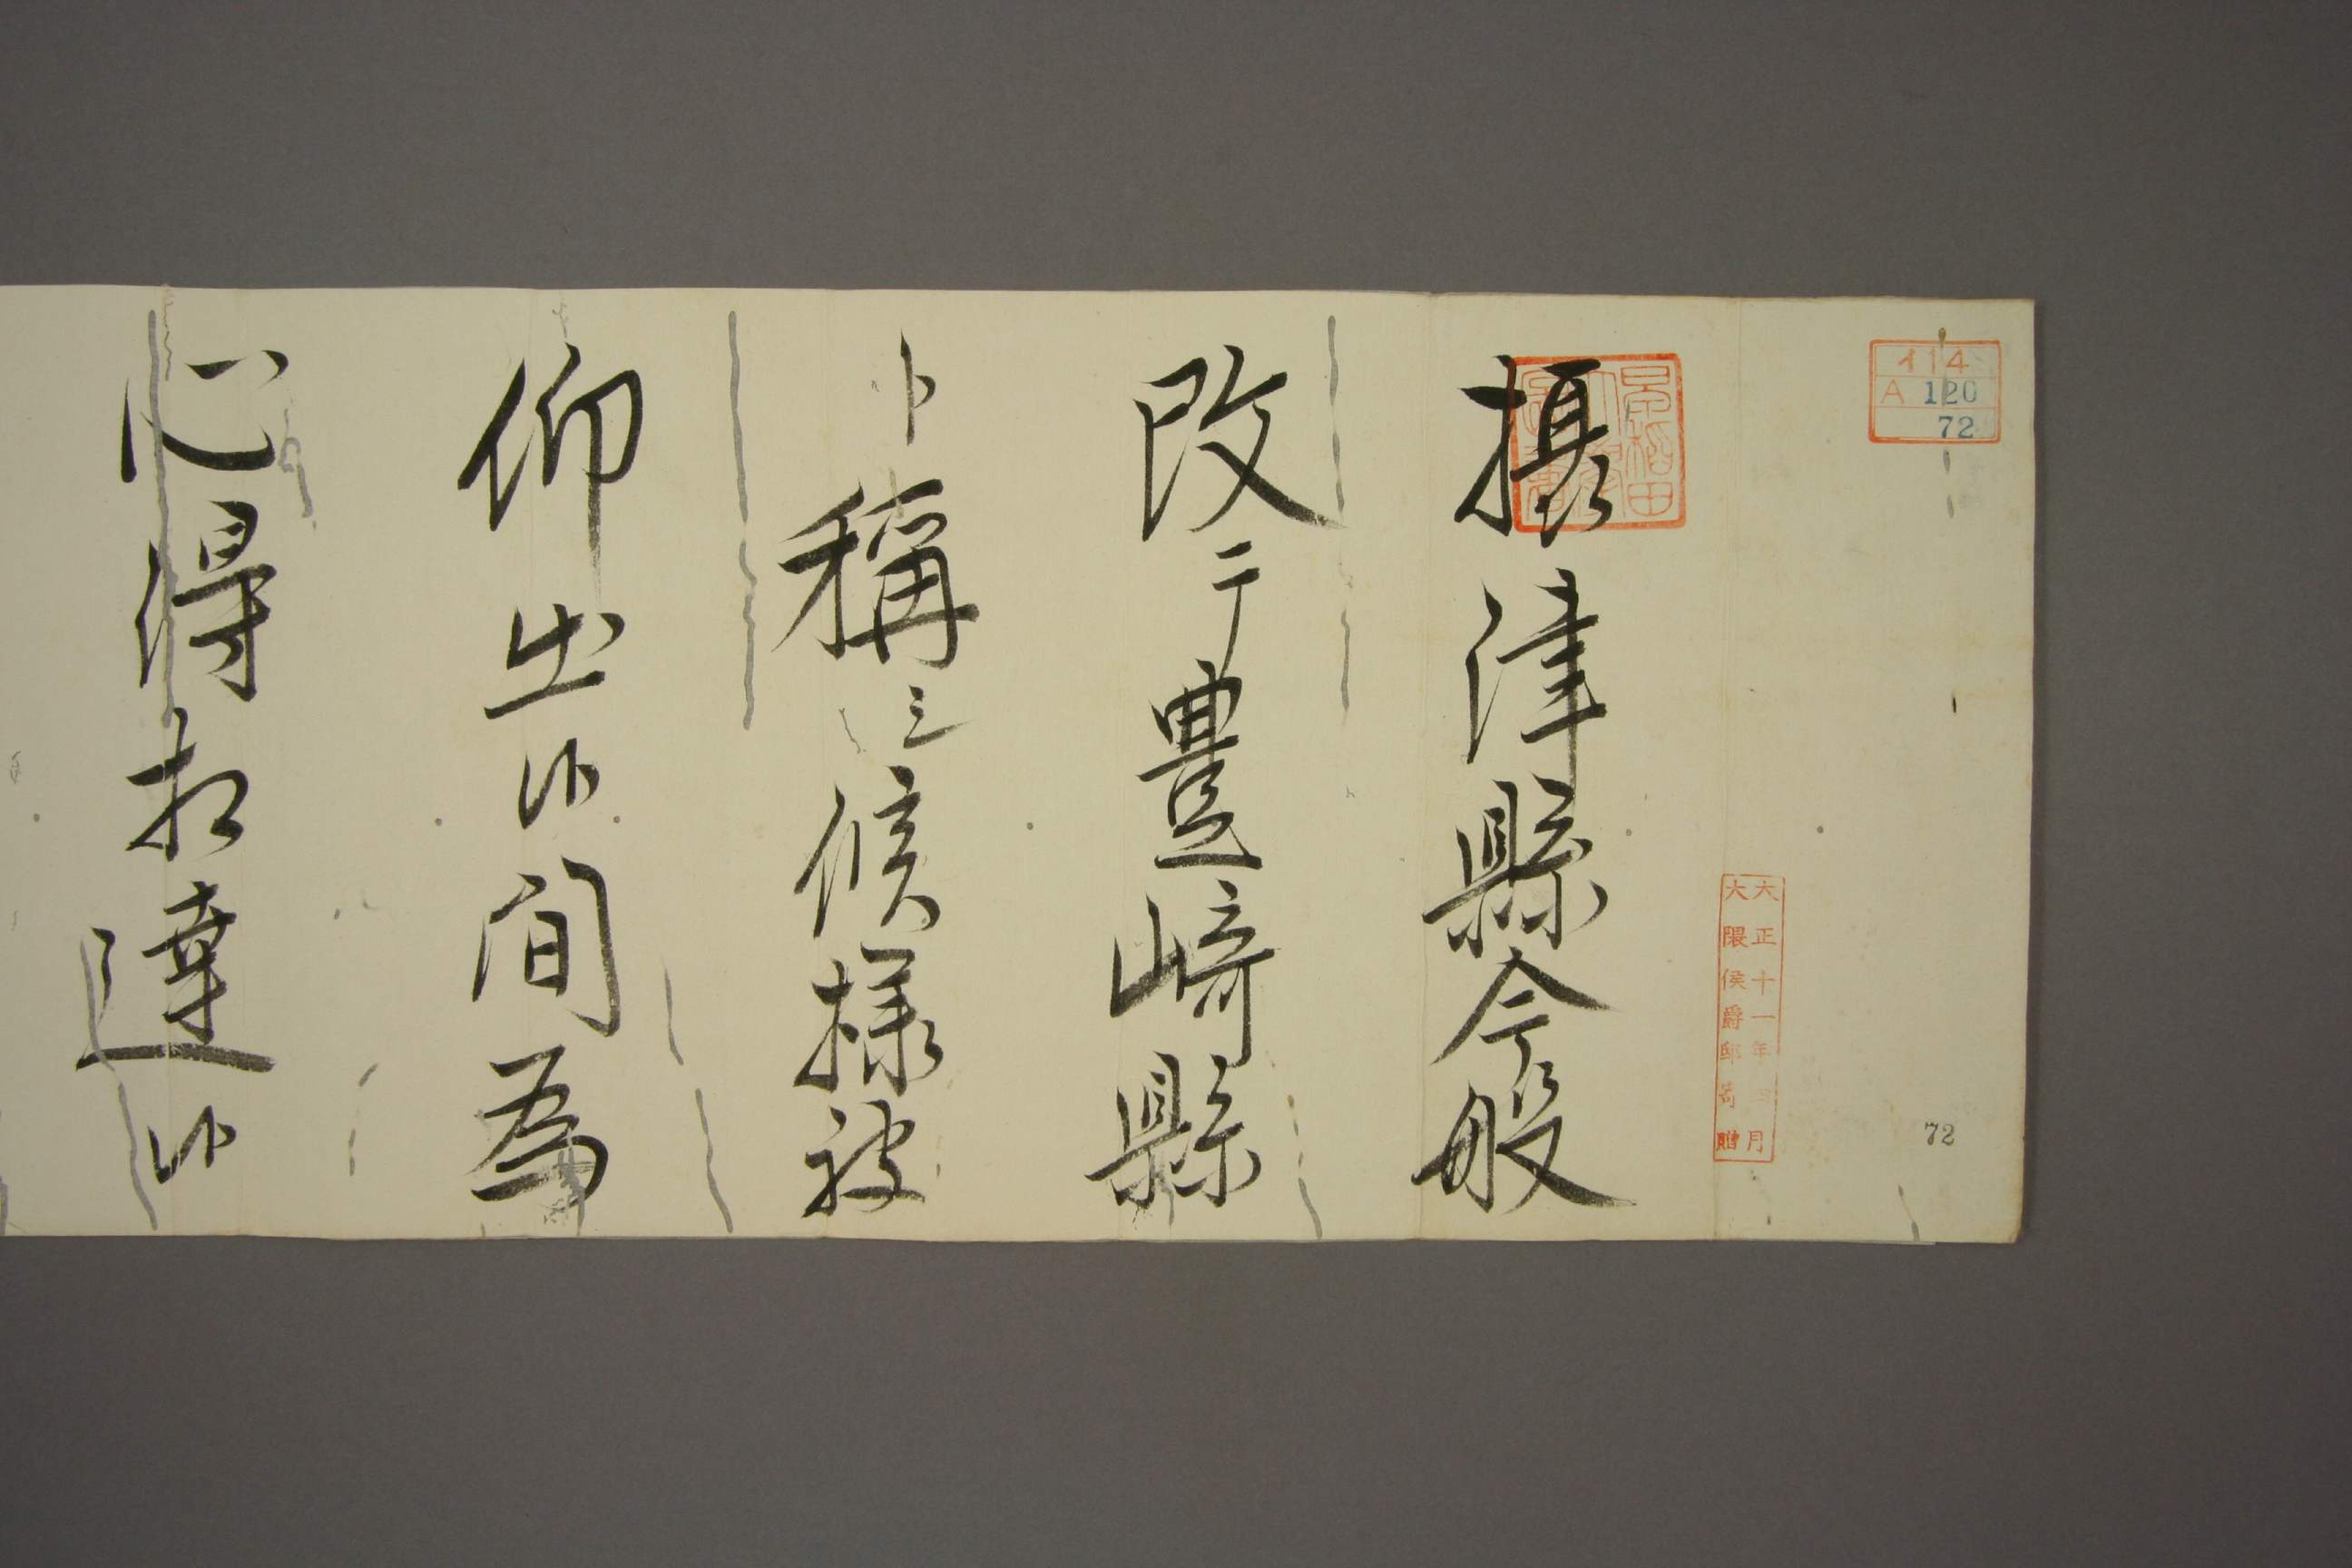 イ14
A 120
72
72
大正十一年四月
大隈侯爵邸寄贈
攝津縣今般
改テ豊﨑縣
ト稱シ候様被
仰出候間為
心得相達候